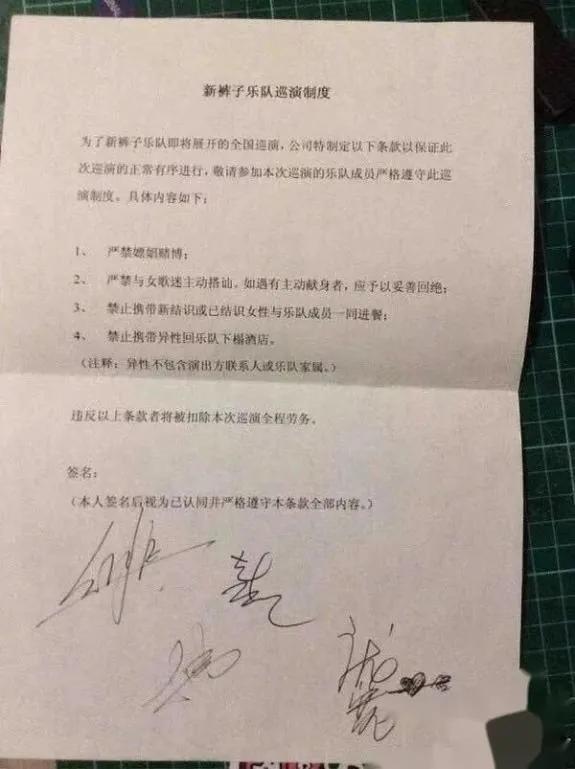 新裤子乐队巡演制度
为了新裤子乐队即将展开的全国巡演，公司特制定以下条款以保证此
次巡演的正常有序进行，敬请参加本次巡演的乐队成员严格遵守此巡
演制度。具体内容如下：
1、 严禁嫖娼赌博；
2、 严禁与女歌迷主动搭讪。如遇有主动献身者，应予以妥善回绝；
3、 禁止携带新结识或已结识女性与乐队成员一同进餐；
4、 禁止携带异性回乐队下榻酒店。
（注释：异性不包含演出方联系人或乐队家属。）
违反以上条款者将被扣除本次巡演全程劳务。
签名：
（本人签名后视为已认同并严格遵守本条款全部内容。）